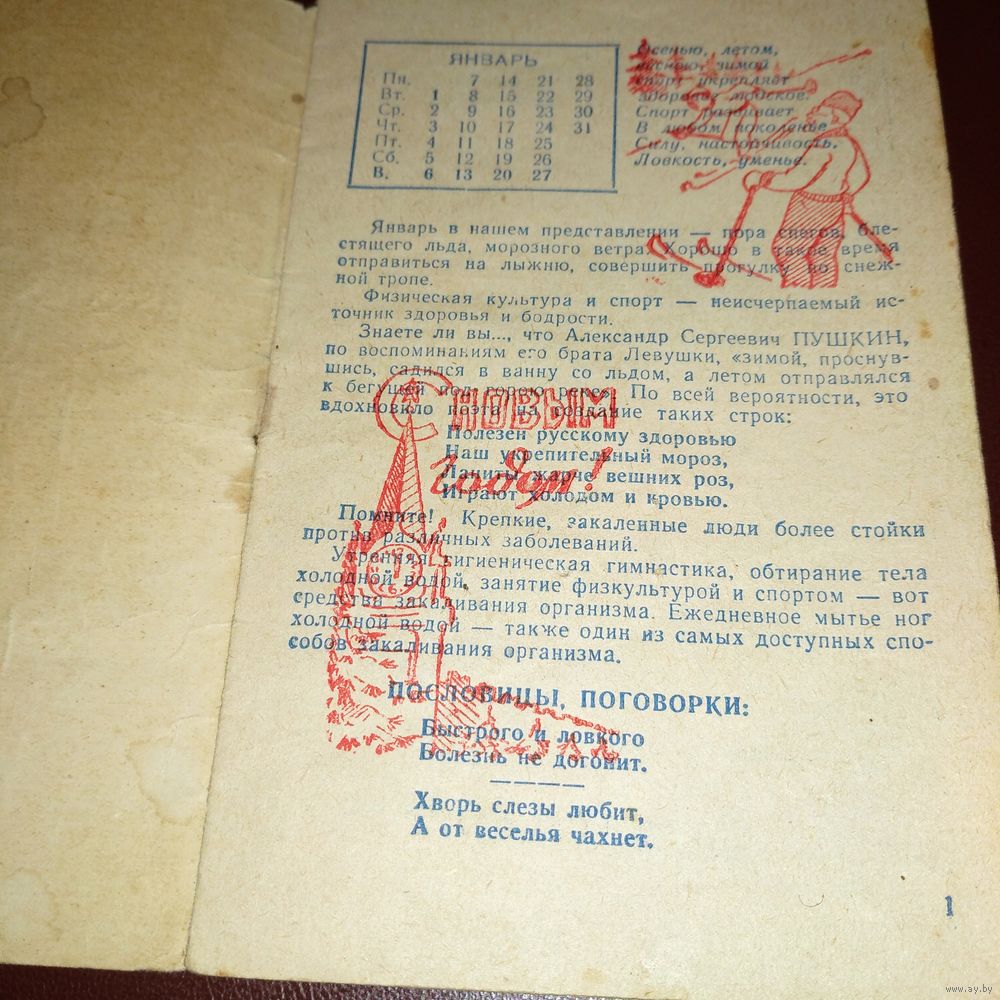 ЯНВАРЬ
Пн. 7 14 21 28
Вт. 1 8 15 22 29
Ср. 2 9 16 23 30
Чт. 3 10 17 24 31
Пт. 4 11 18 25
Сб. 5 12 19 26
В. 6 13 20 27
Осенью, летом,
весною, зимой
спорт укрепляет
здоровье людское.
Спорт развивает
В любом поколенье
Силу, настойчивость.
Ловкость, уменье.
Январь в нашем представлении — пора снегов, бле-
стящего льда, морозного ветра. Хорошо в такие время
отправиться на лыжню, совершить прогулку по снеж-
ной тропе.
Физическая культура и спорт — неисчерпаемый ис-
точник здоровья и бодрости.
Знаете ли вы..., что Александр Сергеевич ПУШКИН,
по воспоминаниям его брата Левушки, «зимой, проснув-
шись, садился в ванну со льдом, а летом отправлялся
к бегущей под горою реке». По всей вероятности, это
вдохновило поэта на создание таких строк:
Полезен русскому здоровью
Наш укрепительный мороз,
Ланиты жарче вешних роз,
Играют холодом и кровью.
С НОВЫМ
годом!
Помните! Крепкие, закаленные люди более стойки
против различных заболеваний.
Утренняя гигиеническая гимнастика, обтирание тела
холодной водой, занятие физкультурой и спортом — вот
средства закаливания организма. Ежедневное мытье ног
холодной водой — также один из самых доступных спо-
собов закаливания организма.
ПОСЛОВИЦЫ, ПОГОВОРКИ:
Быстрого и ловкого
Болезнь не догонит.
Хворь слезы любит,
А от веселья чахнет.
1
www.ay.by